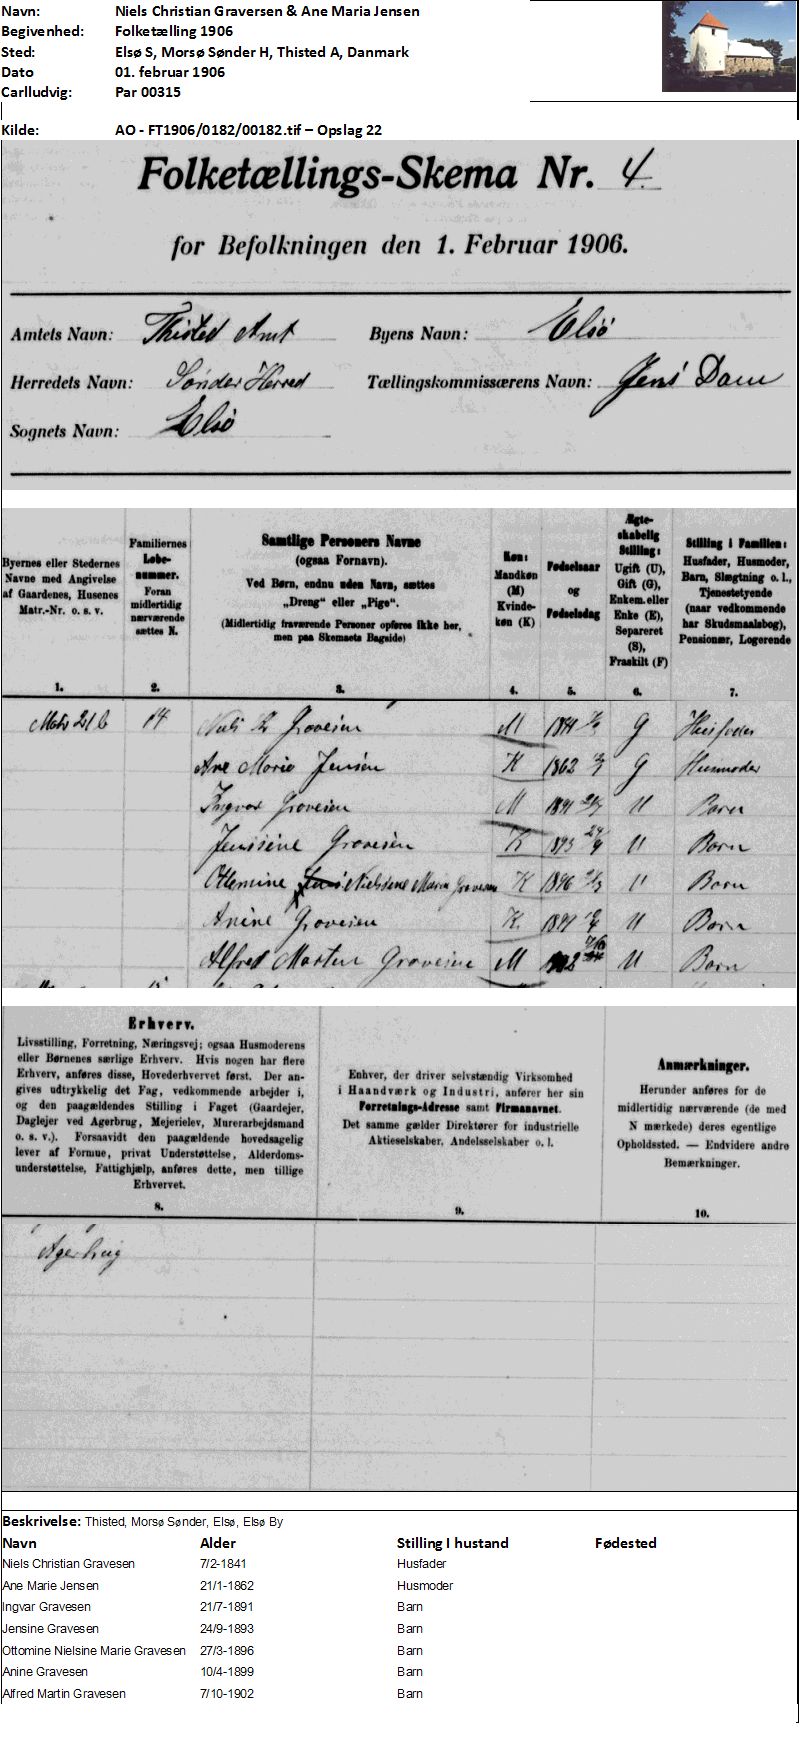 Navn: Niels Christian Graversen & Ane Maria Jensen
Begivenhed: Folketælling 1906
Sted: Elsø S, Morsø Sønder H, Thisted A, Danmark
Dato 01. februar 1906
Carlludvig: Par 00315
Kilde: AO - FT1906/0182/00182.tif – Opslag 22
Folketællings-Skema Nr. 4.
for Befolkningen den 1. Februar 1906.
Amtets Navn: Thisted Amt Byens Navn: Elsø
Herredets Navn: Sønder Herred Tællingskommissærens Navn: Jens Dam
Sognets Navn: Elsø
Byernes eller Stedernes
Navne med Angivelse
af Gaardenes, Husenes
Matr.-Nr. o. s. v.
1.
Familiernes
Løbe-
nummer.
Foran
midlertidig
nærværende
sættes N.
2.
Samtlige Personers Navne
(ogsaa Fornavn).
Ved Børn, endnu uden Navn, sættes
„Dreng“ eller „Pige“.
(Midlertidig fraværende Personer opføres ikke her,
men paa Skemaets Bagside)
3.
Køn:
Mandkøn
(M)
Kvinde-
køn (K)
4.
Fødselsaar
og
Fødselsdag
5.
Ægte-
skabelig
Stilling:
Ugift (U),
Gift (G),
Enkem. eller
Enke (E),
Separeret
(S),
Fraskilt (F)
6.
Stilling i Familien:
Husfader, Husmoder,
Barn, Slægtning o. l.,
Tjenestetyende
(naar vedkommende
har Skudsmaalsbog),
Pensionær, Logerende
7.
Matr 21 b 14 Niels Kr Gravesen M 1841 7/2 G Husfader
Ane Marie Jensen K 1862 G Husmoder
Ingvar Gravesen M 1891 21/7 U Barn
Jenssine Gravesen K 1893 24/9 U Barn
Ottemine Nielsine Marie Gravesen K 1896 U Barn
Anine Gravesen K U Barn
Alfred Martin Gravesen M 1902 U Barn
Erhverv.
Livsstilling, Forretning, Næringsvej; ogsaa Husmoderens
eller Børnenes særlige Erhverv. Hvis nogen har flere
Erhverv, anføres disse, Hovederhvervet først. Der an-
gives udtrykkelig det Fag, vedkommende arbejder i,
og den paagældendes Stilling i Faget (Gaardejer,
Daglejer ved Agerbrug, Mejerielev, Murerarbejdsmand
o. s. v.). Forsaavidt den paagældende hovedsagelig
lever af Formue, privat Understøttelse, Alderdoms-
understøttelse, Fattighjælp, anføres dette, men tillige
Erhvervet.
8.
Enhver, der driver selvstændig Virksomhed
i Haandværk og Industri, anfører her sin
Forretnings-Adresse samt Firmanavnet.
Det samme gælder Direktører for industrielle
Aktieselskaber, Andelsselskaber o. l.
9.
Anmærkninger.
Herunder anføres for de
midlertidig nærværende (de med
N mærkede) deres egentlige
Opholdssted. — Endvidere andre
Bemærkninger.
10.
Agerbrug
Beskrivelse: Thisted, Morsø Sønder, Elsø, Elsø By
Navn Alder Stilling I hustand Fødested
Niels Christian Gravesen 7/2-1841 Husfader
Ane Marie Jensen 21/1-1862 Husmoder
Ingvar Gravesen 21/7-1891 Barn
Jensine Gravesen 24/9-1893 Barn
Ottomine Nielsine Marie Gravesen 27/3-1896 Barn
Anine Gravesen 10/4-1899 Barn
Alfred Martin Gravesen 7/10-1902 Barn